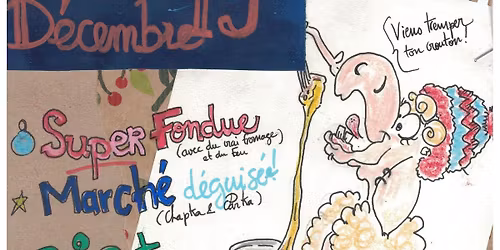 Décembre
Viens tremper
ton crouton!
Super Fondue
(avec du vrai fromage)
et du feu
Marché déguisé!
(Chapka & Parka)